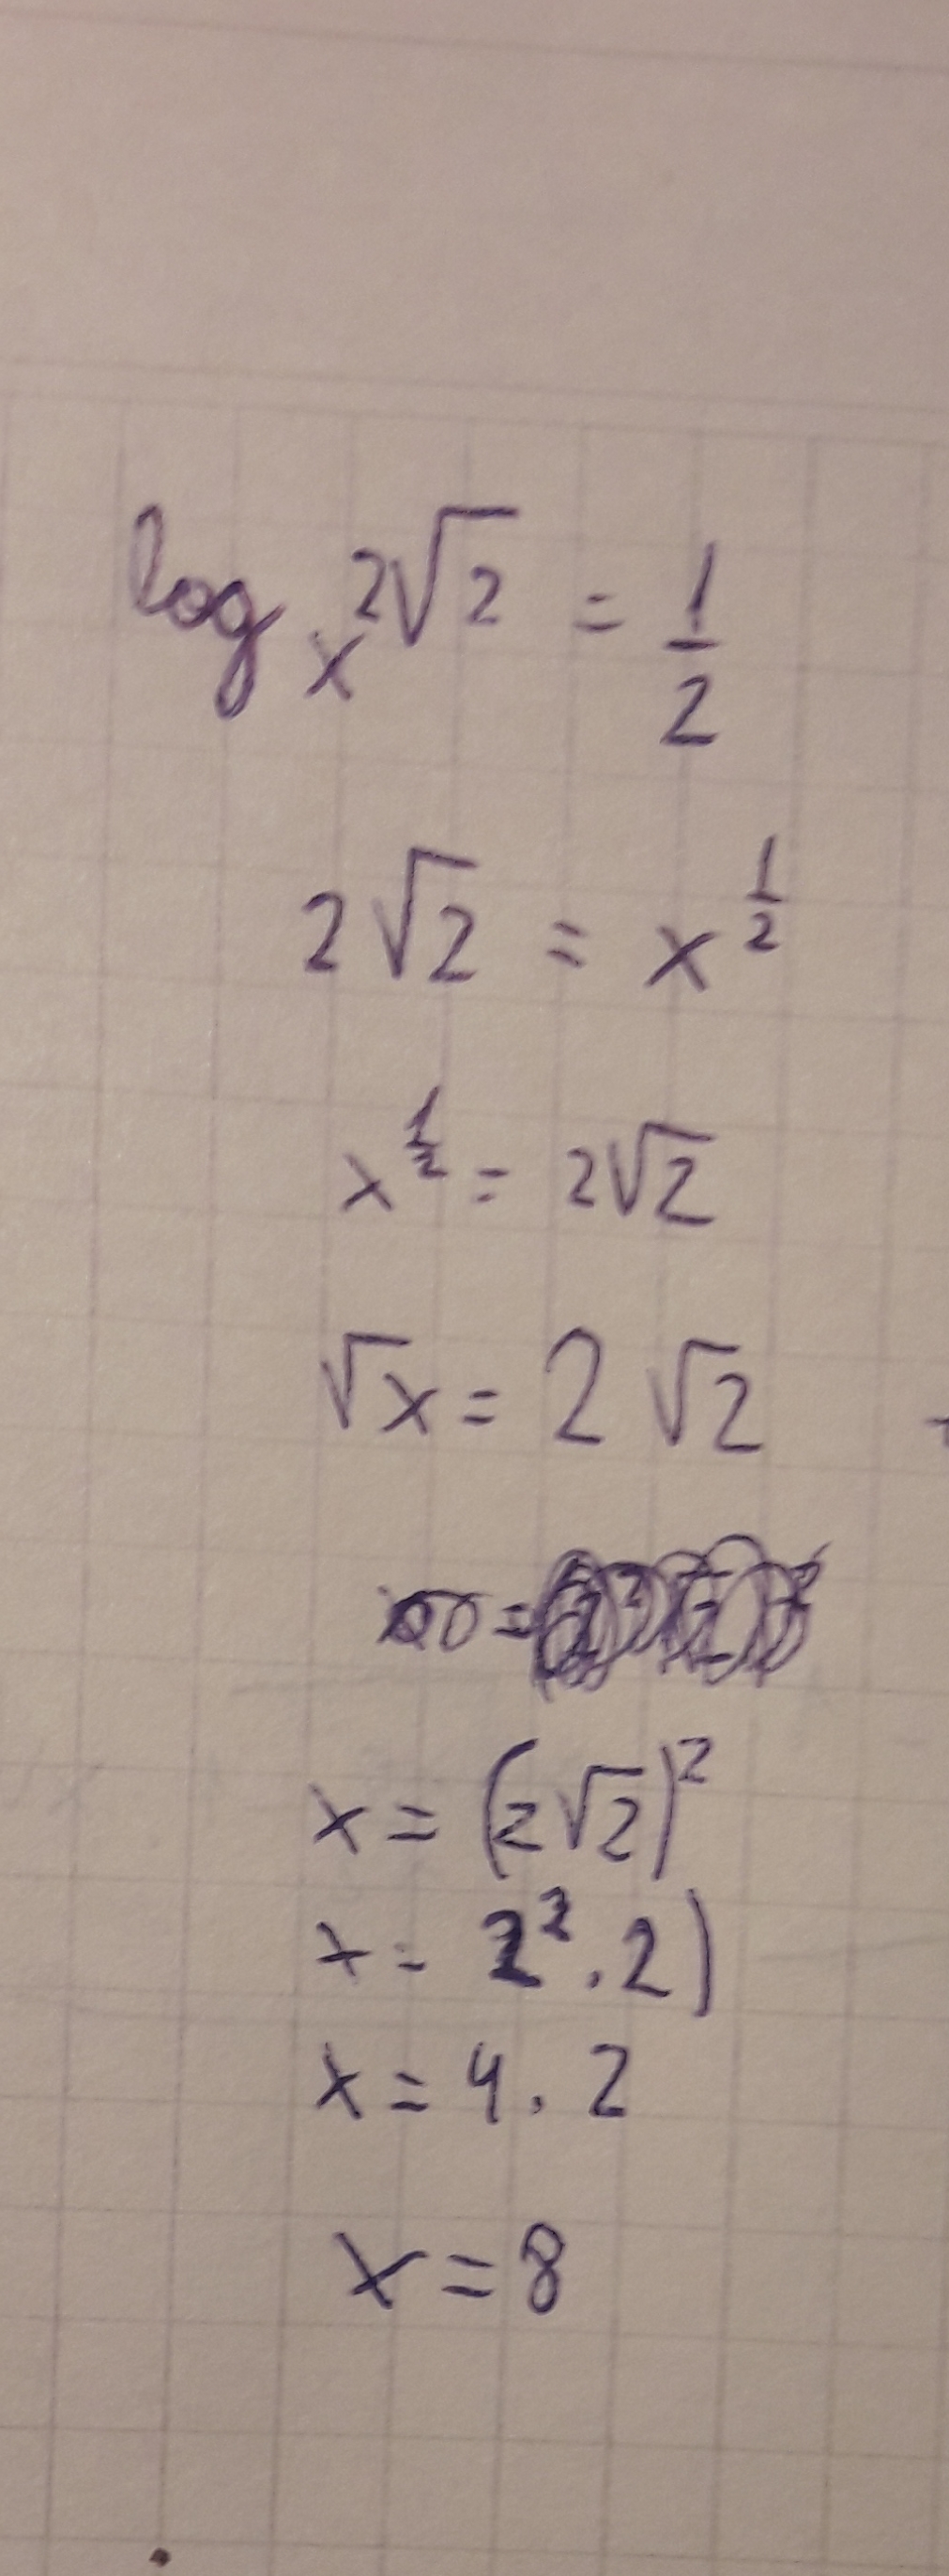 log x 2√2 = 1/2
2√2 = x^1/2
x^1/2 = 2√2
√x = 2√2
x = (2√2)^2
x = 2^2 . 2)
x = 4 . 2
x = 8